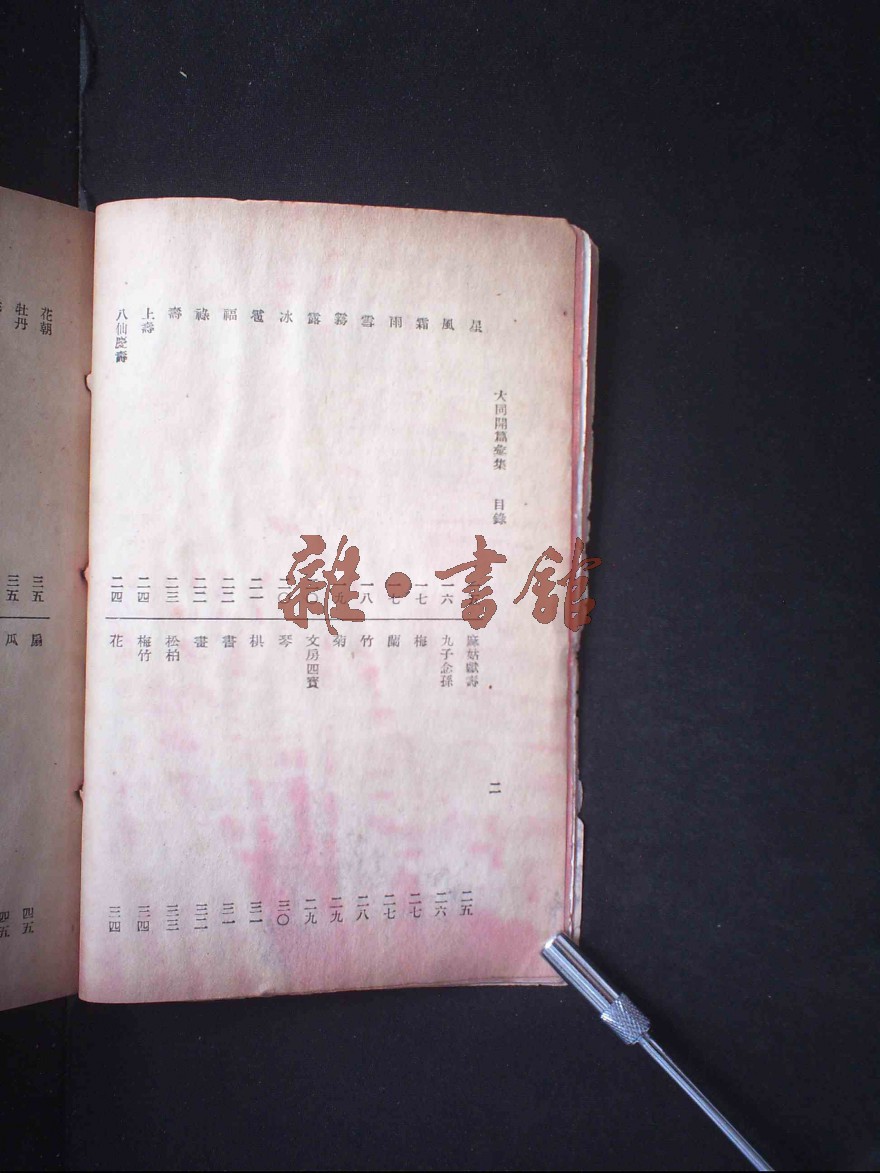 大同開篇彙集 目錄 二
星
風 一六
霜 一七
雨 一七
雪 一八
霧 一九
露
冰 二〇
雹 二一
福 二二
祿 二二
壽 二三
上壽 二四
八仙慶壽 二四
麻姑獻壽 二五
九子念孫 二六
梅 二七
蘭 二七
竹 二八
菊 二九
文房四寶 二九
琴 三〇
棋 三一
書 三一
畫 三二
松柏 三三
梅竹 三四
花 三四
花朝 三五
牡丹 三五
扇 四五
瓜 四五
雜·書館